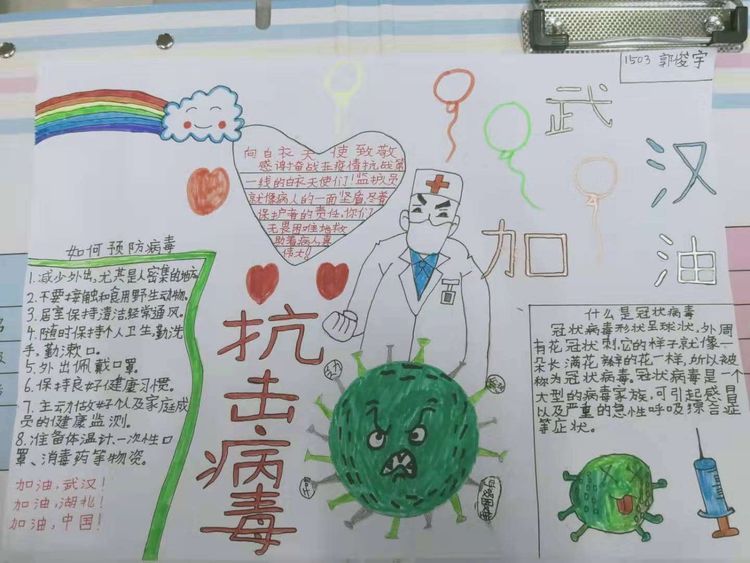 1503 郭俊宇
武汉
加油
向白衣天使致敬
感谢奋战在疫情抗战第
一线的白衣天使们！监护员
就像病人的一面坚盾，尽着
保护者的责任，你们
无畏困难地救
助着病人真
伟大！
如何预防病毒
1.减少外出，尤其是人密集的地方
2.不要接触和食用野生动物。
3.居室保持清洁经常通风。
4.随时保持个人卫生，勤洗
手，勤漱口。
5.外出佩戴口罩。
6.保持良好健康习惯。
7.主动做好个人及家庭成
员的健康监测。
8.准备体温针、一次性口
罩、消毒药等物资。
加油，武汉！
加油，湖北！
加油，中国！
抗击病毒
什么是冠状病毒
冠状病毒形状呈球状，外周
有花冠状刺，它的样子就像一
朵长满花瓣的花一样，所以被
称为冠状病毒。冠状病毒是一个
大型的病毒家族，可引起感冒
以及严重的急性呼吸综合症
等症状。